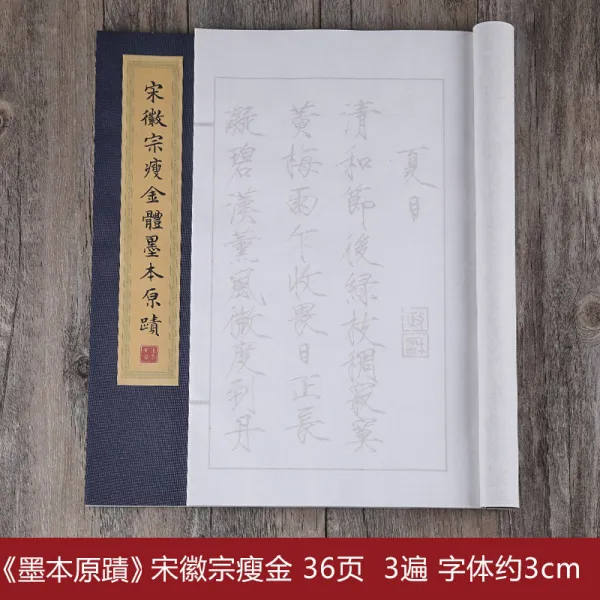 宋徽宗瘦金體墨本原蹟
夏日
清和節後綠枝稠寂寞
黃梅雨乍收畏日正長
凝碧漢薰風微度到丹
《墨本原蹟》宋徽宗瘦金 36页 3遍 字体约3cm